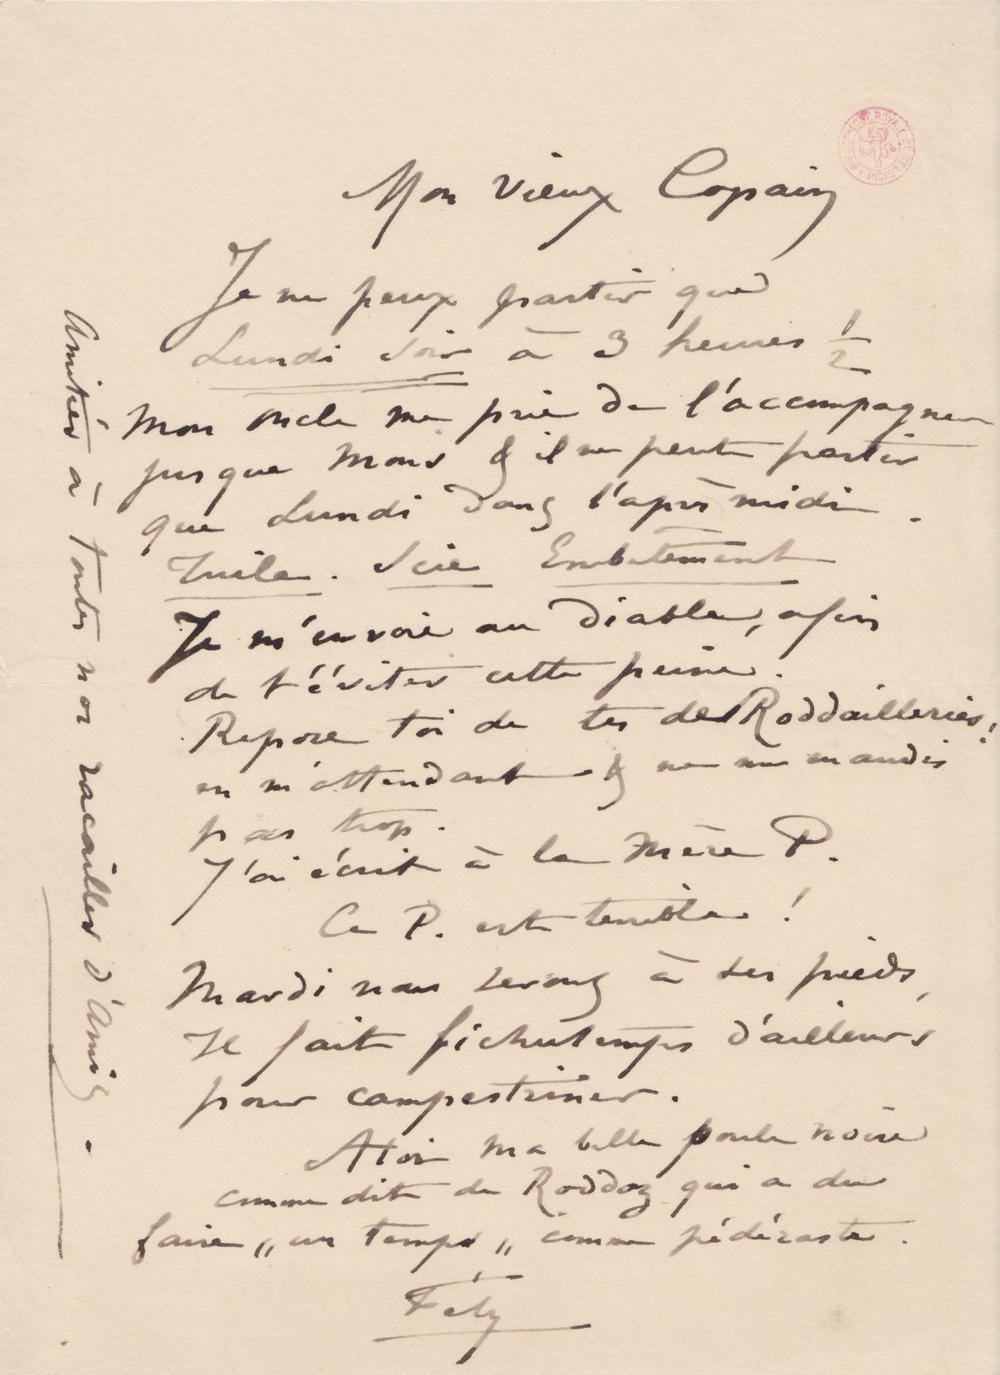 Mon vieux Copain
Je ne peux partir que
Lundi soir à 3 heures 1/2
Mon oncle me prie de l'accompagner
jusque Mons & il ne peut partir
que Lundi dans l'après midi.
Tuile. Scie Embêtement
Je m'envoie au Diable, afin
de t'éviter cette peine.
Repose toi de tes de Roddailleries!
en m'attendant & ne me maudis
pas trop.
J'ai écrit à la Mère P.
Ce P. est terrible!
Mardi nous serons à ses pieds,
Il fait fichu temps d'ailleurs
pour campestriner.
A toi ma belle poule noire
comme dit de Roddaz qui a du
faire „un temps„ comme pédéraste.
Fély
Amitiés à toutes nos racailles d'Amis.
BIBLIOTHÈQUE ROYALE DE BELGIQUE